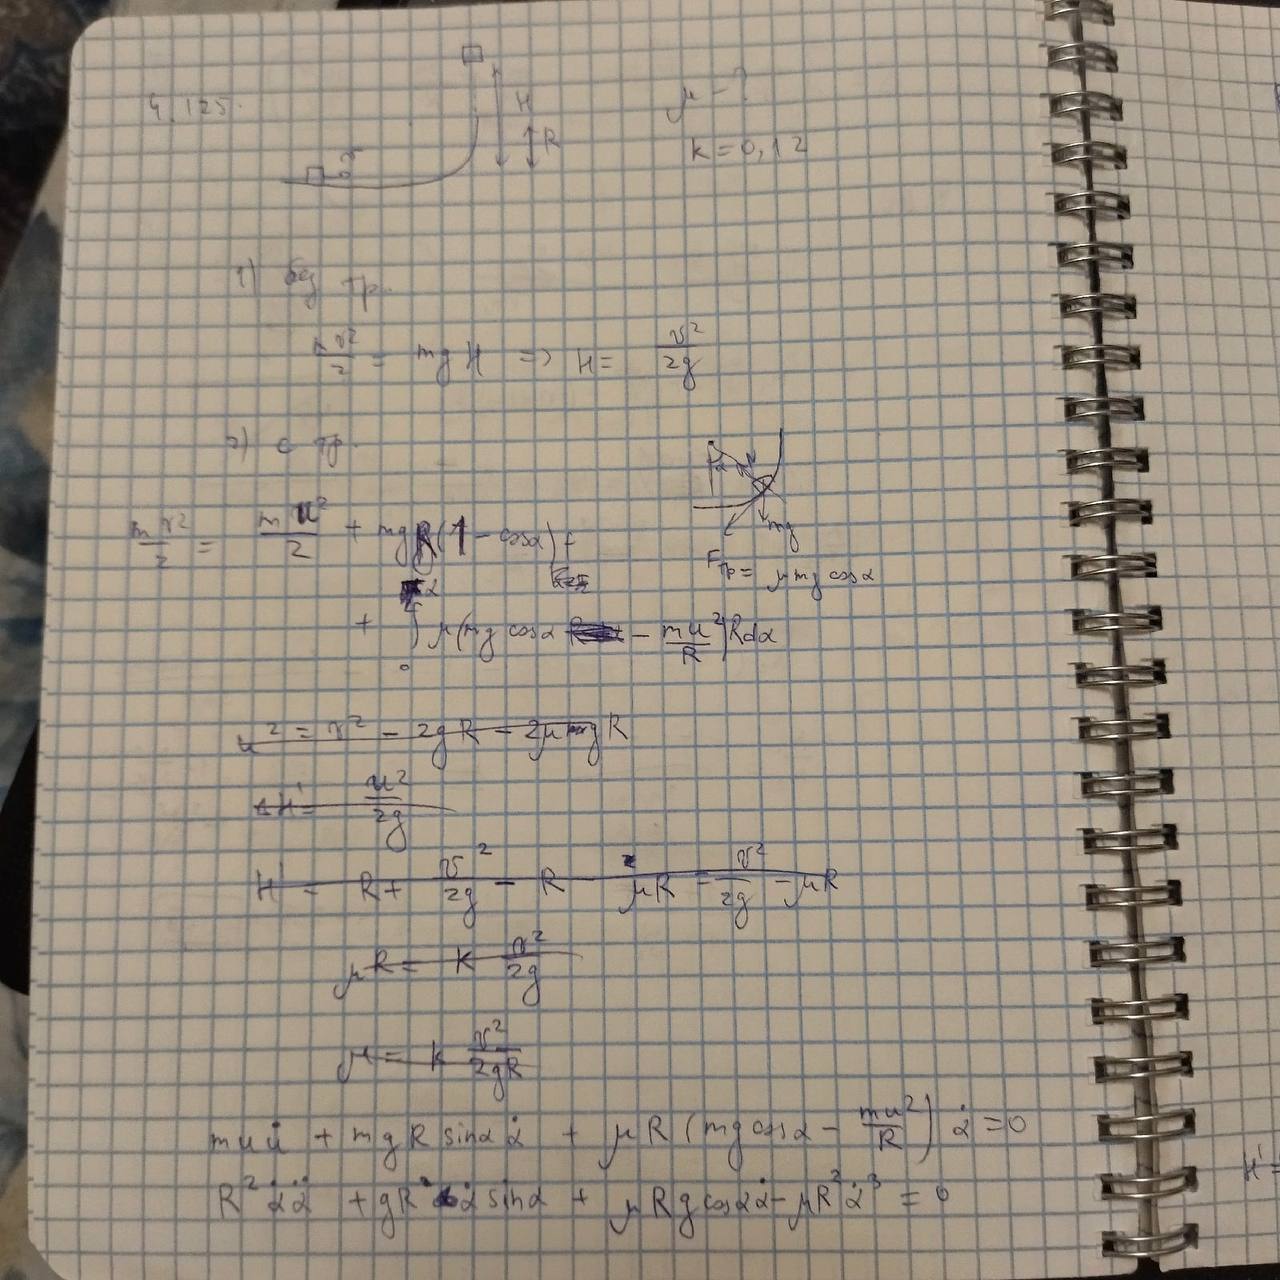 4.125.
H
R
μ - ?
k = 0,12
1) без тр.
mv²/2 = mgH => H = v²/2g
2) с тр.
mg
Fтр = μmg cosα
mv²/2 = mu²/2 + mgR(1 - cosα) +
+ ∫₀^α μ(mg cosα - mu²/R)Rdα
u² = v² - 2gR - 2μgR
ΔH' = u²/2g
H' = R + v²/2g - R - μR = v²/2g - μR
μR = k v²/2g
μ = k v²/2gR
muu̇ + mgR sinα α̇ + μR (mg cosα - mu²/R) α̇ = 0
R²α̇α̈ + gR α̇ sinα + μRg cosα α̇ - μR²α̇³ = 0
H' =